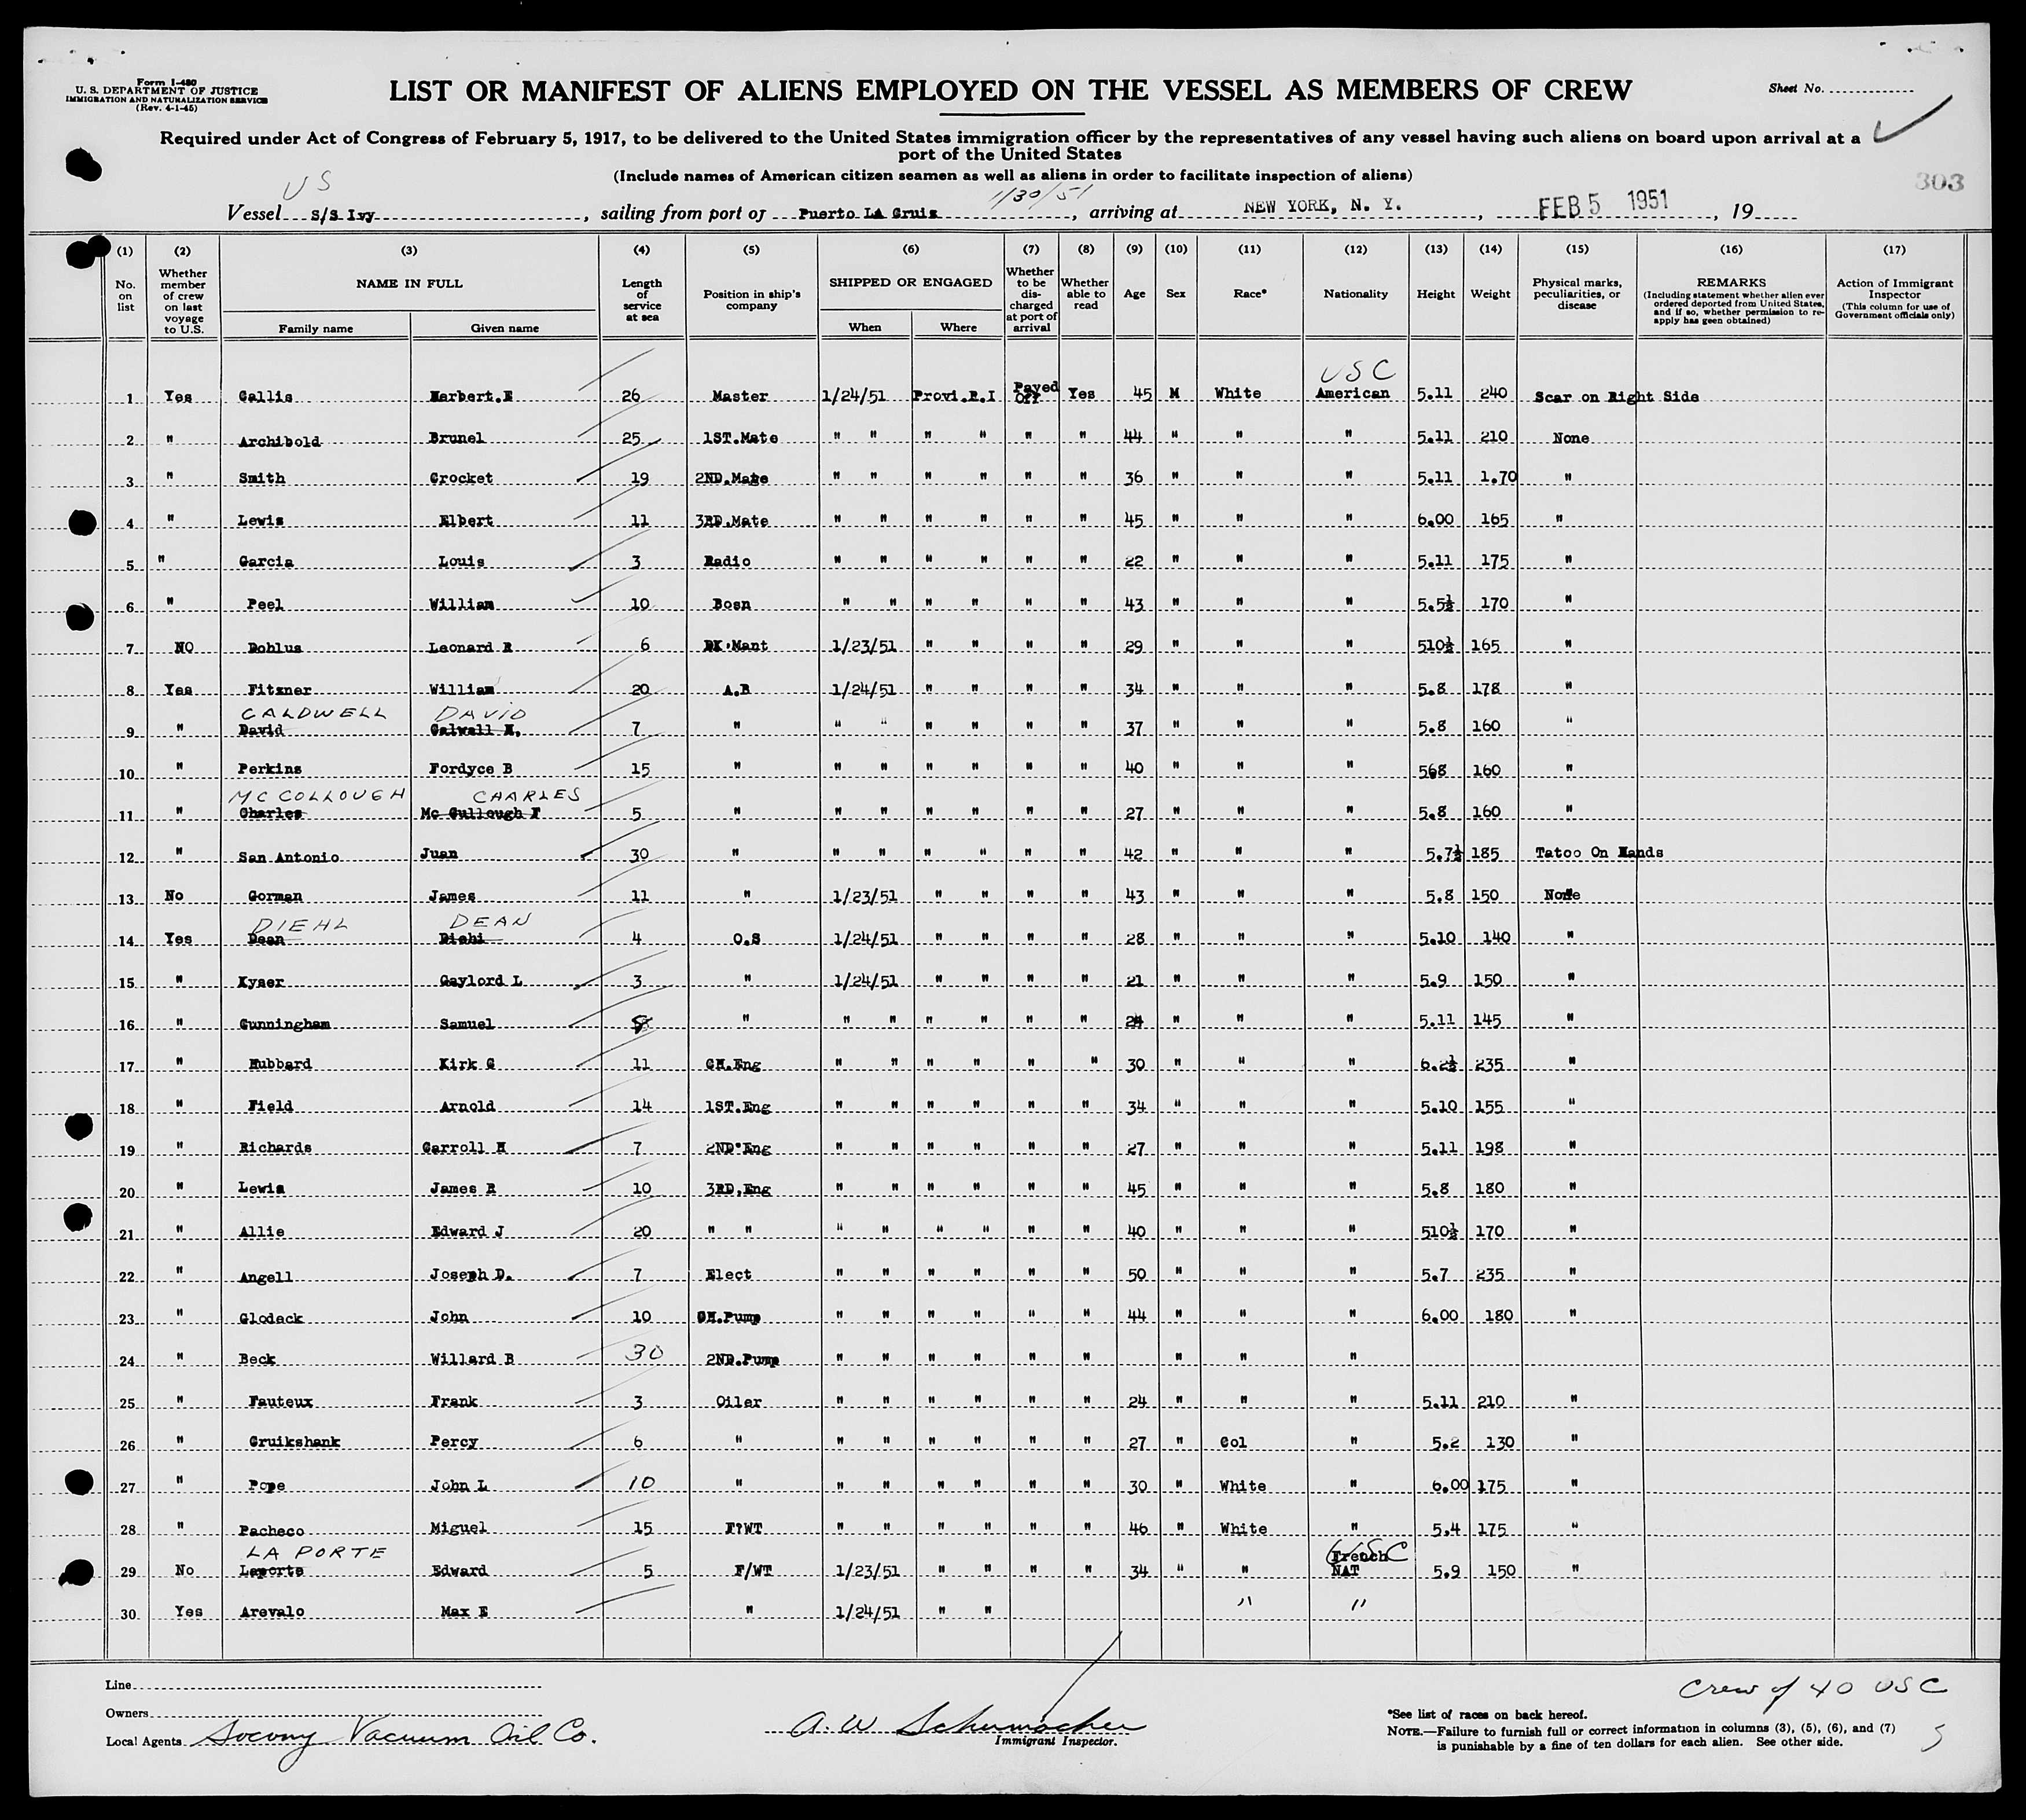 Form I-480
U. S. DEPARTMENT OF JUSTICE
IMMIGRATION AND NATURALIZATION SERVICE
(Rev. 4-1-45)
LIST OR MANIFEST OF ALIENS EMPLOYED ON THE VESSEL AS MEMBERS OF CREW
Sheet No.
Required under Act of Congress of February 5, 1917, to be delivered to the United States immigration officer by the representatives of any vessel having such aliens on board upon arrival at a
port of the United States
(Include names of American citizen seamen as well as aliens in order to facilitate inspection of aliens)
303
US
1/30/51
Vessel S/S Ivy, sailing from port of Puerto LA Cruis, arriving at NEW YORK, N. Y., FEB 5 1951, 19
(1) No. on list
(2) Whether member of crew on last voyage to U.S.
(3) NAME IN FULL Family name Given name
(4) Length of service at sea
(5) Position in ship's company
(6) SHIPPED OR ENGAGED When Where
(7) Whether to be discharged at port of arrival
(8) Whether able to read
(9) Age
(10) Sex
(11) Race*
(12) Nationality
(13) Height
(14) Weight
(15) Physical marks, peculiarities, or disease
(16) REMARKS (Including statement whether alien ever ordered deported from United States, and if so, whether permission to re-apply has geen obtained)
(17) Action of Immigrant Inspector (This column for use of Government officials only)
USC
1 Yes Gallis Herbert.E 26 Master 1/24/51 Provi.R.I Payed Off Yes 45 M White American 5.11 240 Scar on Right Side
2 " Archibold Brunel 25 1ST.Mate " " " " " " 44 " " " 5.11 210 None
3 " Smith Crocket 19 2ND.Mate " " " " " " 36 " " " 5.11 1.70 "
4 " Lewis Elbert 11 3RD.Mate " " " " " " 45 " " " 6.00 165 "
5 " Garcia Louis 3 Radio " " " " " " 22 " " " 5.11 175 "
6 " Peel William 10 Bosn " " " " " " 43 " " " 5.5½ 170 "
7 NO Dohlus Leonard R 6 DK.Mant 1/23/51 " " " " 29 " " " 510½ 165 "
8 Yes Fitzner William 20 A.B 1/24/51 " " " " 34 " " " 5.8 178 "
CALDWELL DAVID
9 " David Calwell H. 7 " " " " " " " 37 " " " 5.8 160 "
10 " Perkins Fordyce B 15 " " " " " " " 40 " " " 568 160 "
MC COLLOUGH CHARLES
11 " Charles Mc Cullough F 5 " " " " " " " 27 " " " 5.8 160 "
12 " San Antonio Juan 30 " " " " " " " 42 " " " 5.7½ 185 Tatoo On Hands
13 No Gorman James 11 " 1/23/51 " " " " 43 " " " 5.8 150 None
DIEHL DEAN
14 Yes Dean Diehi 4 O.S 1/24/51 " " " " 28 " " " 5.10 140 "
15 " Kyser Gaylord L 3 " 1/24/51 " " " " 21 " " " 5.9 150 "
16 " Cunningham Samuel " " " " " " " 24 " " " 5.11 145 "
17 " Hubbard Kirk G 11 CH.Eng " " " " " " 30 " " " 6.2½ 235 "
18 " Field Arnold 14 1ST.Eng " " " " " " 34 " " " 5.10 155 "
19 " Richards Carroll H 7 2ND.Eng " " " " " " 27 " " " 5.11 198 "
20 " Lewis James R 10 3RD.Eng " " " " " " 45 " " " 5.8 180 "
21 " Allie Edward J 20 " " " " " " " " 40 " " " 510½ 170 "
22 " Angell Joseph D. 7 Elect " " " " " " 50 " " " 5.7 235 "
23 " Glodeck John 10 CH.Pump " " " " " " 44 " " " 6.00 180 "
24 " Beck Willard B 30 2ND.Pump " " " " " " " " "
25 " Fauteux Frank 3 Oiler " " " " " " 24 " " " 5.11 210 "
26 " Cruikshank Percy 6 " " " " " " " 27 " Col " 5.2 130 "
27 " Pope John L 10 " " " " " " " 30 " White " 6.00 175 "
28 " Pacheco Miguel 15 F?WT " " " " " " 46 " White " 5.4 175 "
LA PORTE USC
29 No Laporte Edward 5 F/WT 1/23/51 " " " " 34 " " French NAT 5.9 150 "
30 Yes Arevalo Max E " 1/24/51 " " " "
Line
Owners
Local Agents Socony Vacuum Oil Co.
A. W Schumacher
Immigrant Inspector.
Crew of 40 USC
*See list of races on back hereof.
NOTE.—Failure to furnish full or correct information in columns (3), (5), (6), and (7)
is punishable by a fine of ten dollars for each alien. See other side.